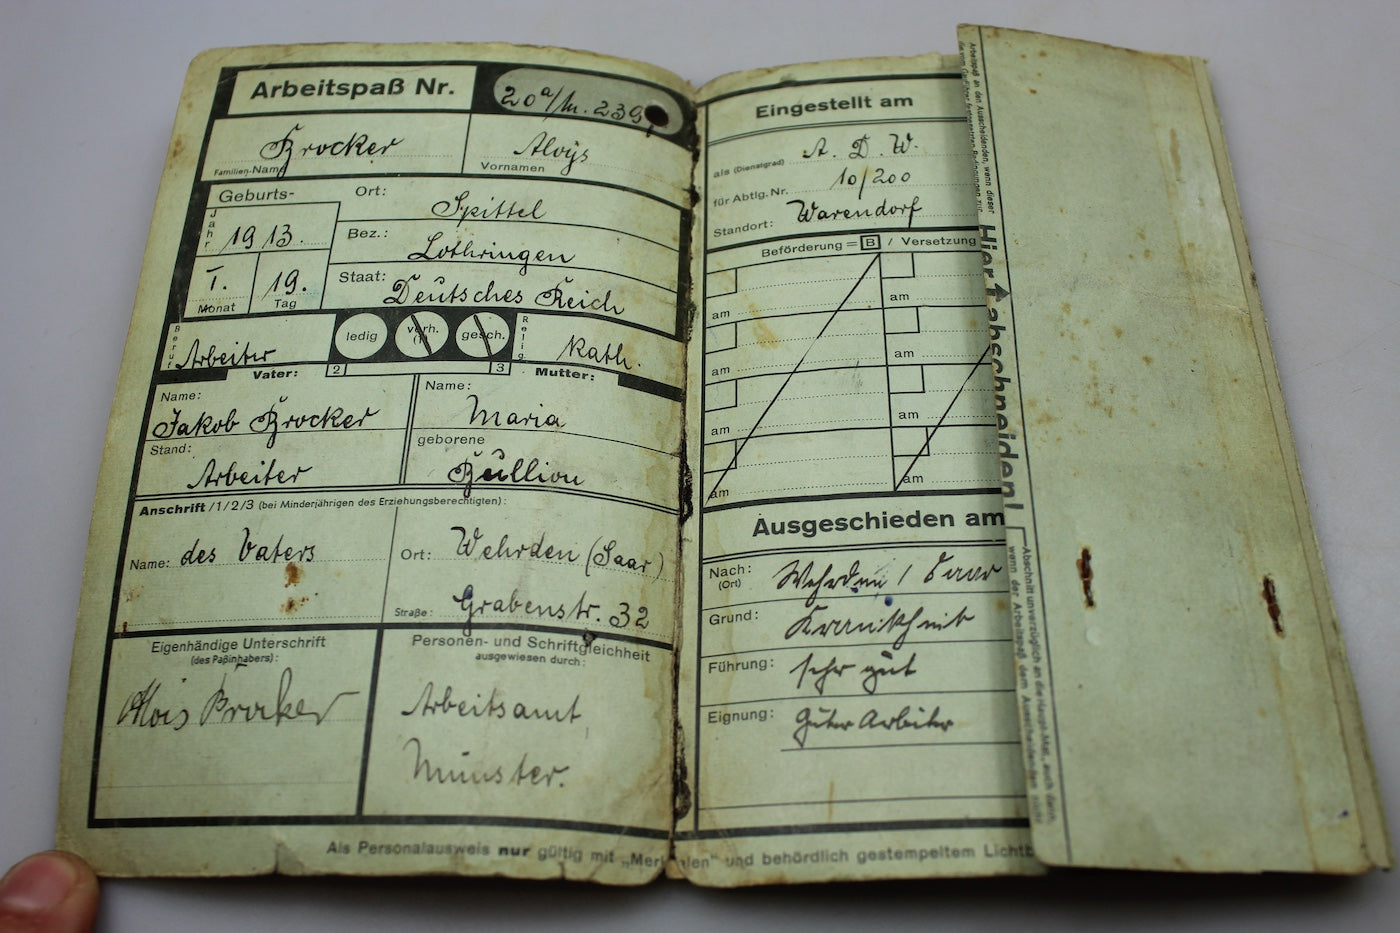 Arbeitspaß Nr. 20a/W. 239
Brocker Aloys
Familien-Name Vornamen
Geburts- Ort: Spittel
Jahr 1913. Bez.: Lothringen
I. 19. Staat: Deutsches Reich
Monat Tag
Beruf Arbeiter ledig verh. (1) gesch. Relig. Kath.
Vater: 2 3 Mutter:
Name: Name:
Jakob Brocker Maria
Stand: geborene
Arbeiter Bullion
Anschrift /1/2/3 (bei Minderjährigen des Erziehungsberechtigten):
Name: des Vaters Ort: Wehrden (Saar)
Straße: Grabenstr. 32
Eigenhändige Unterschrift
(des Paßinhabers):
Alois Brocker
Personen- und Schriftgleichheit
ausgewiesen durch:
Arbeitsamt
Münster.
Als Personalausweis nur gültig mit „Merkmalen" und behördlich gestempeltem
Eingestellt am
als (Dienstgrad) A. D. W.
für Abtlg. Nr. 10/200
Standort: Warendorf
Beförderung = B / Versetzung
am am
am am
am am
am am
Ausgeschieden am
Nach: (Ort) Wehrden / Saar
Grund: Krankheit
Führung: sehr gut
Eignung: Guter Arbeiter
Hier abschneiden!
Arbeitspaß an den Ausscheidenden, wenn dieser
Abschnitt unverzüglich an die Haupt-Mel. auch dann,
wenn der Arbeitspaß dem Ausscheidenden nicht